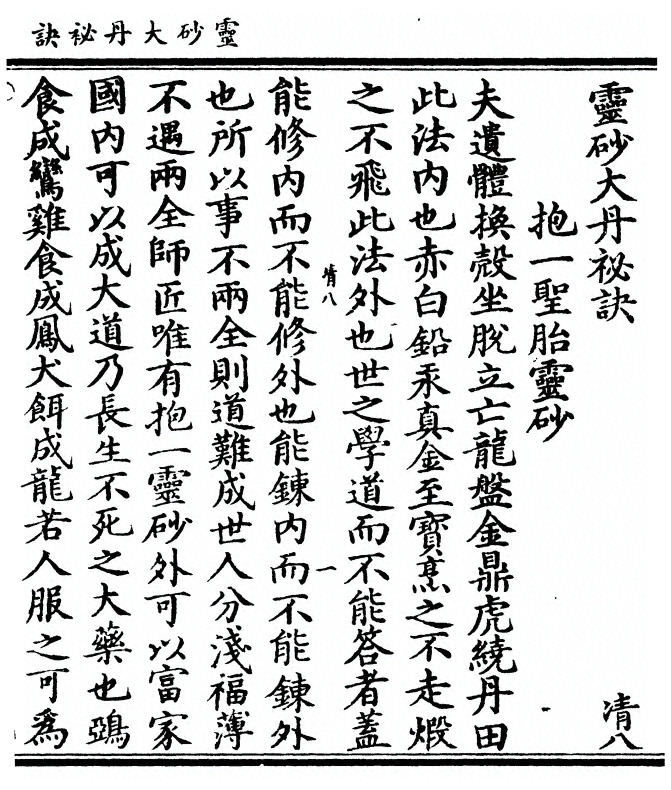 靈砂大丹祕訣
靈砂大丹祕訣
清八
抱一聖胎靈砂
夫遺體換殼坐脫立亡龍盤金鼎虎繞丹田
此法内也赤白鉛汞真金至寶烹之不走煅
之不飛此法外也世之學道而不能答者蓋
清八
一
能修内而不能修外也能鍊内而不能鍊外
也所以事不兩全則道難成世人分淺福薄
不遇兩全師匠唯有抱一靈砂外可以富家
國内可以成大道乃長生不死之大藥也鵶
食成鸞雞食成鳳犬餌成龍若人服之可爲